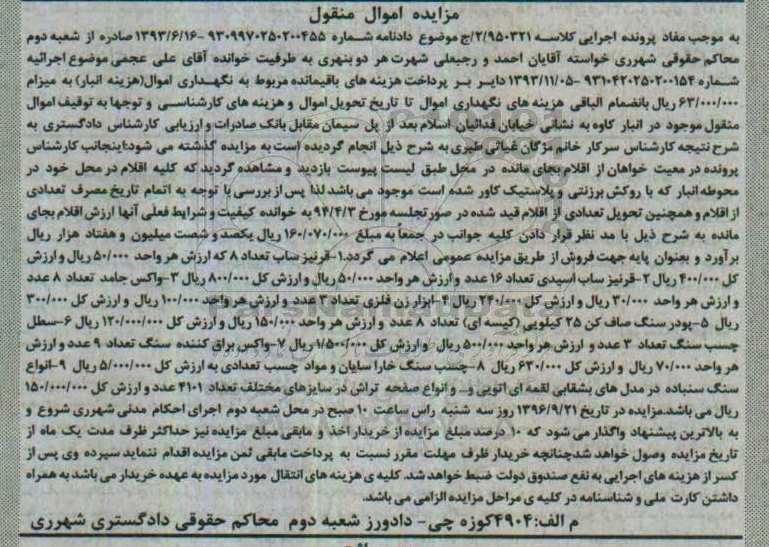 مزایده اموال منقول
به موجب مفاد پرونده اجرایی کلاسه ۲/۹۵۰۳۲۱/ج موضوع دادنامه شماره ۹۳۰۹۹۷۰۲۵۰۲۰۰۴۵۵ -۱۳۹۳/۶/۱۶ صادره از شعبه دوم
محاکم حقوقی شهرری خواسته آقایان احمد و رجبعلی شهرت هر دو بنهری به طرفیت خوانده آقای علی عجمی موضوع اجرائیه
شماره ۹۳۱۰۴۲۰۲۵۰۲۰۰۱۵۴ -۱۳۹۳/۱۱/۰۵ دایر بر پرداخت هزینه های باقیمانده مربوط به نگهداری اموال(هزینه انبار) به میزام
۶۳/۰۰۰/۰۰۰ ریال بانضمام الباقی هزینه های نگهداری اموال تا تاریخ تحویل اموال و هزینه های کارشناسی و توجها به توقیف اموال
منقول موجود در انبار کاوه به نشانی خیابان فدائیان اسلام بعد از پل سیمان مقابل بانک صادرات و ارزیابی کارشناس دادگستری به
شرح نتیجه کارشناس سرکار خانم مژگان غیاثی طبری به شرح ذیل انجام گردیده است به مزایده گذشته می شود:اینجانب کارشناس
پرونده در معیت خواهان از اقلام بجای مانده در محل طبق لیست پیوست بازدید و مشاهده گردید که کلیه اقلام در محل خود در
محوطه انبار که با روکش برزنتی و پلاستیک کاور شده است موجود می باشد لذا پس از بررسی با توجه به اتمام تاریخ مصرف تعدادی
از اقلام و همچنین تحویل تعدادی از اقلام قید شده در صورتجلسه مورخ ۹۴/۴/۳ به خوانده کیفیت و شرایط فعلی آنها ارزش اقلام بجای
مانده به شرح ذیل با مد نظر قرار دادن کلیه جوانب در جمعاً به مبلغ ۱۶۰/۰۷۰/۰۰۰ ریال یکصد و شصت میلیون و هفتاد هزار ریال
برآورد و بعنوان پایه جهت فروش از طریق مزایده عمومی اعلام می گردد.۱-قرنیز ساب تعداد ۸ که ارزش هر واحد ۵۰/۰۰۰ ریال و ارزش
کل ۴۰۰/۰۰۰ ریال ۲-قرنیز ساب اسیدی تعداد ۱۶ عدد و ارزش هر واحد ۵۰/۰۰۰ ریال و ارزش کل ۸۰۰/۰۰۰ ریال ۳-واکس جامد تعداد ۸ عدد
و ارزش هر واحد ۳۰/۰۰۰ ریال و ارزش کل ۲۴۰/۰۰۰ ریال ۴-ابزار زن فلزی تعداد ۳ عدد و ارزش هر واحد ۱۰۰/۰۰۰ ریال و ارزش کل ۳۰۰/۰۰۰
ریال ۵-پودر سنگ صاف کن ۲۵ کیلویی (کیسه ای) تعداد ۸ عدد و ارزش هر واحد ۱۵۰/۰۰۰ ریال و ارزش کل ۱۲۰/۰۰۰/۰۰۰ ریال ۶-سطل
چسب سنگ تعداد ۳ عدد و ارزش هر واحد ۵۰۰/۰۰۰ ریال و ارزش کل ۱/۵۰۰/۰۰۰ ریال ۷-واکس براق کننده سنگ تعداد ۹ عدد و ارزش
هر واحد ۷۰/۰۰۰ ریال و ارزش کل ۶۳۰/۰۰۰ ریال ۸-چسب سنگ خارا سابان و مواد چسب تعدادی به ارزش کل ۵/۰۰۰/۰۰۰ ریال ۹-انواع
سنگ سنباده در مدل های بشقابی لقمه ای اتویی و.. و انواع صفحه تراش در سایزهای مختلف تعداد ۴۱۰۱ عدد و ارزش کل ۱۵۰/۰۰۰/۰۰۰
ریال می باشد.مزایده در تاریخ ۱۳۹۶/۹/۲۱ روز سه شنبه راس ساعت ۱۰ صبح در محل شعبه دوم اجرای احکام مدنی شهرری شروع و
به بالاترین پیشنهاد واگذار می شود که ۱۰ درصد مبلغ مزایده از خریدار اخذ و مابقی مبلغ مزایده نیز حداکثر ظرف مدت یک ماه از
تاریخ مزایده وصول خواهد شد چنانچه خریدار ظرف مهلت مقرر نسبت به پرداخت مابقی ثمن مزایده اقدام ننماید سپرده وی پس از
کسر از هزینه های اجرایی به نفع صندوق دولت ضبط خواهد شد. کلیه ی هزینه های انتقال مورد مزایده به عهده خریدار می باشد به همراه
داشتن کارت ملی و شناسنامه در کلیه ی مراحل مزایده الزامی می باشد.
م الف:۴۹۰۴ کوزه چی- دادورز شعبه دوم محاکم حقوقی دادگستری شهرری